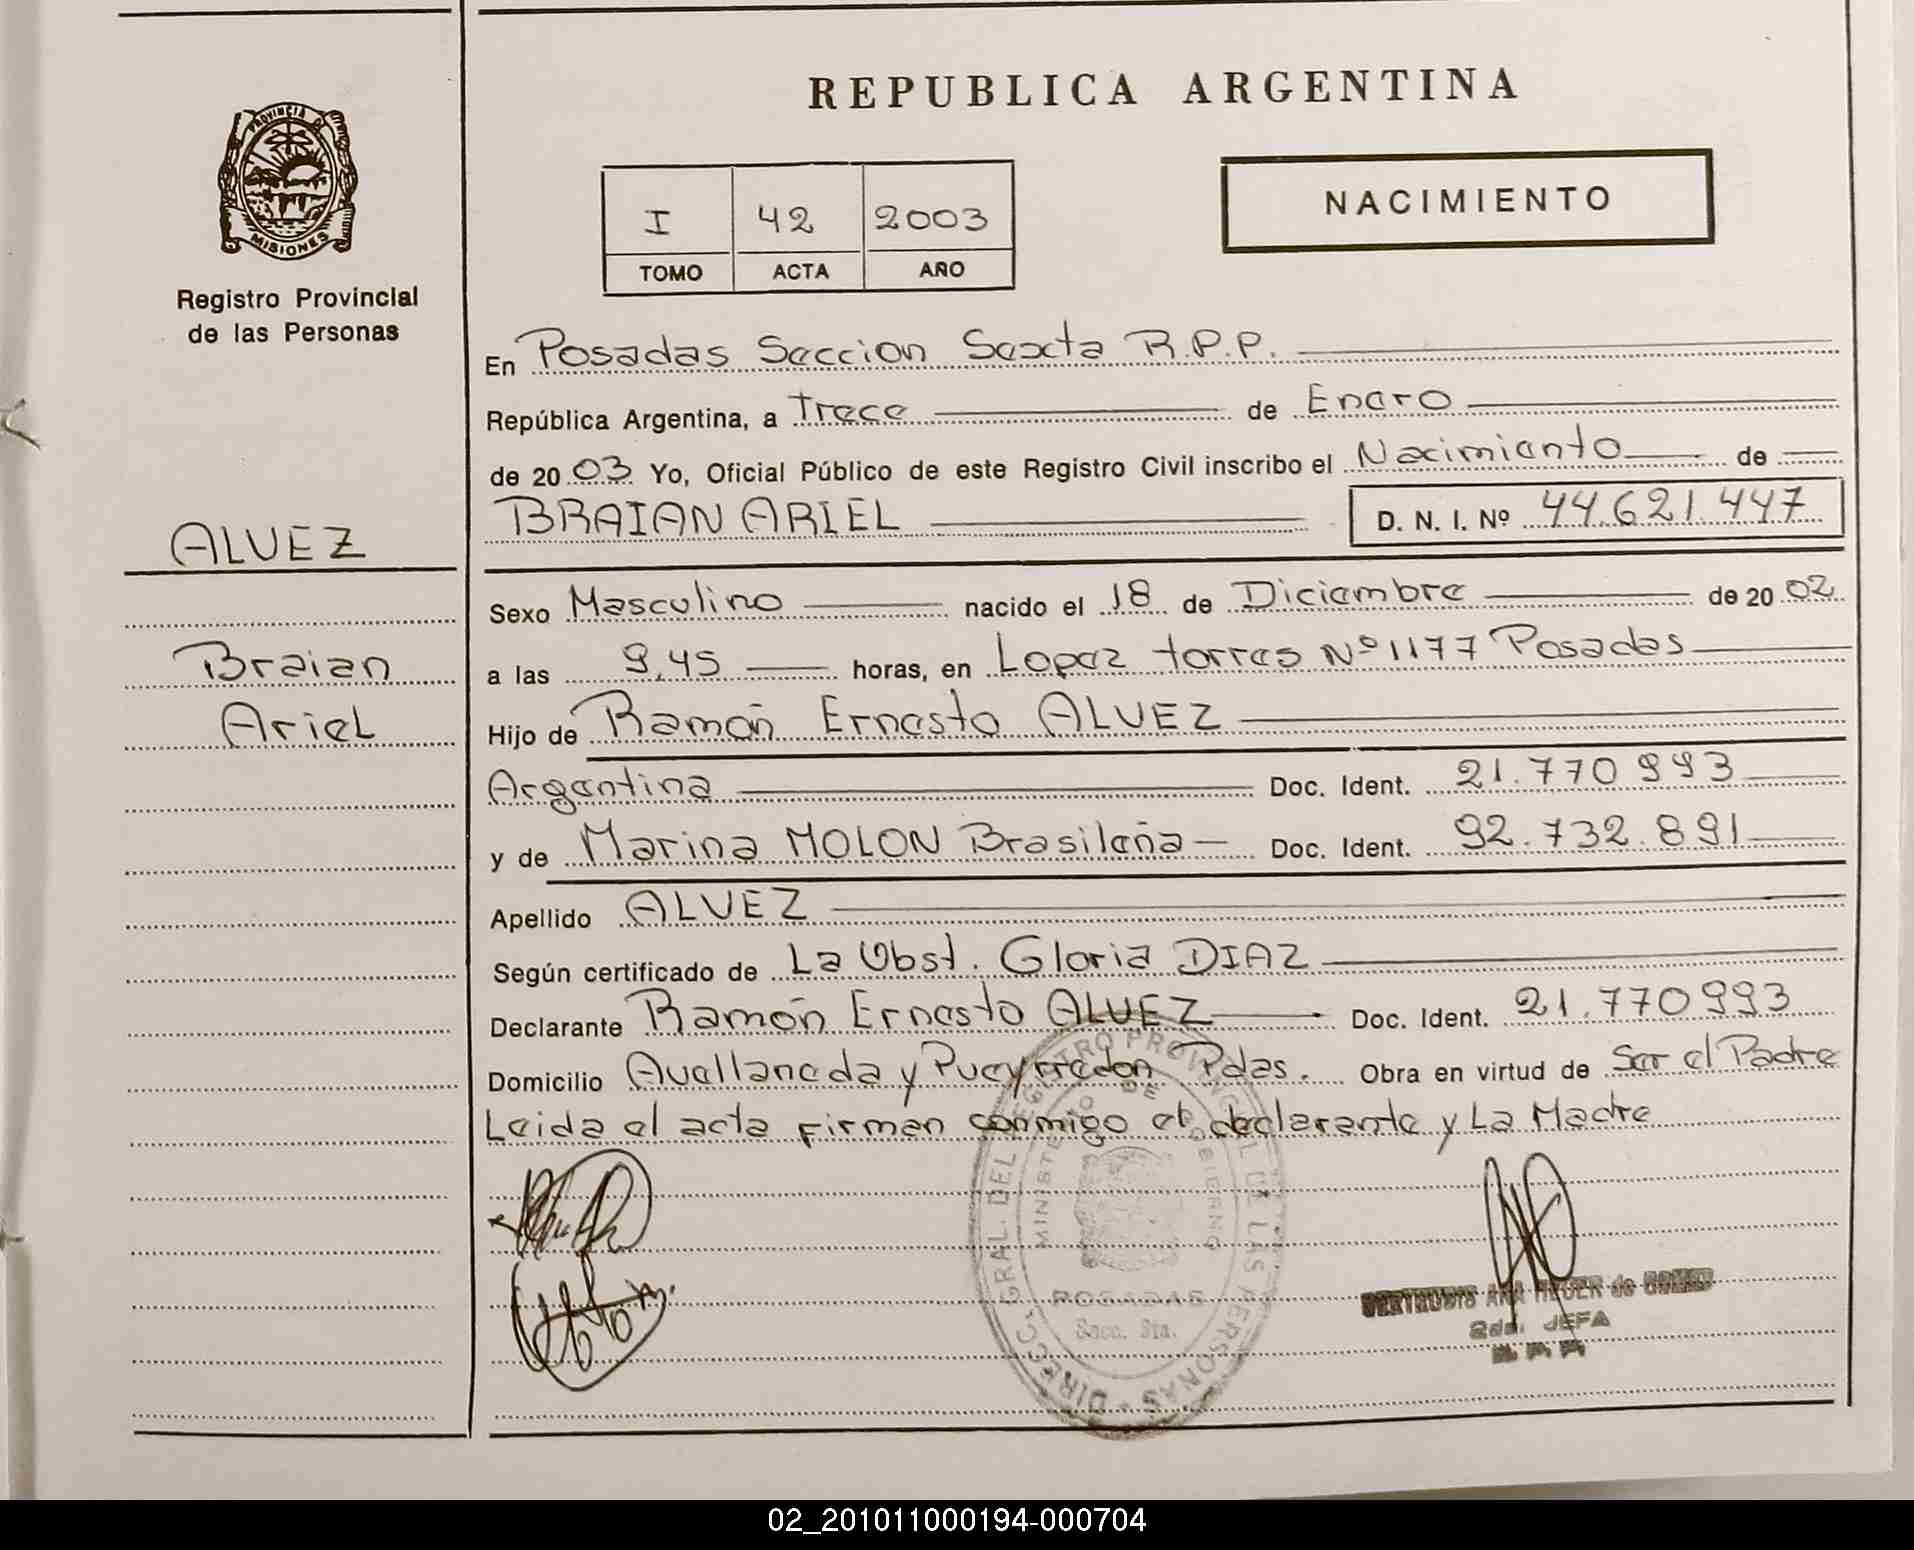 REPUBLICA ARGENTINA
PROVINCIA DE
MISIONES
Registro Provincial
de las Personas
I 42 2003
TOMO ACTA AÑO
NACIMIENTO
En Posadas Seccion Sexta R.P.P.
República Argentina, a trece de Enero
de 2003 Yo, Oficial Público de este Registro Civil inscribo el Nacimiento de
BRAIAN ARIEL D. N. I. Nº 44.621.447
ALVEZ
Braian
Ariel
Sexo Masculino nacido el 18 de Diciembre de 2002
a las 9,45 horas, en Lopez torres Nº 1177 Posadas
Hijo de Ramón Ernesto ALVEZ
Argentina Doc. Ident. 21.770993
y de Marina MOLON Brasileña Doc. Ident. 92.732.891
Apellido ALVEZ
Según certificado de La Obst. Gloria DIAZ
Declarante Ramón Ernesto ALVEZ Doc. Ident. 21.770993
Domicilio Avellaneda y Pueyrredon Pdas. Obra en virtud de Ser el Padre
Leida el acta firman conmigo el declarante y La Madre
DIRECC. GRAL. DEL REGISTRO PROVINCIAL DE LAS PERSONAS
MINISTERIO DE GOBIERNO
POSADAS
Secc. 6ta.
GERTRUDIS ANA de GOMEZ
2da. JEFA
R.P.P.
02_201011000194-000704